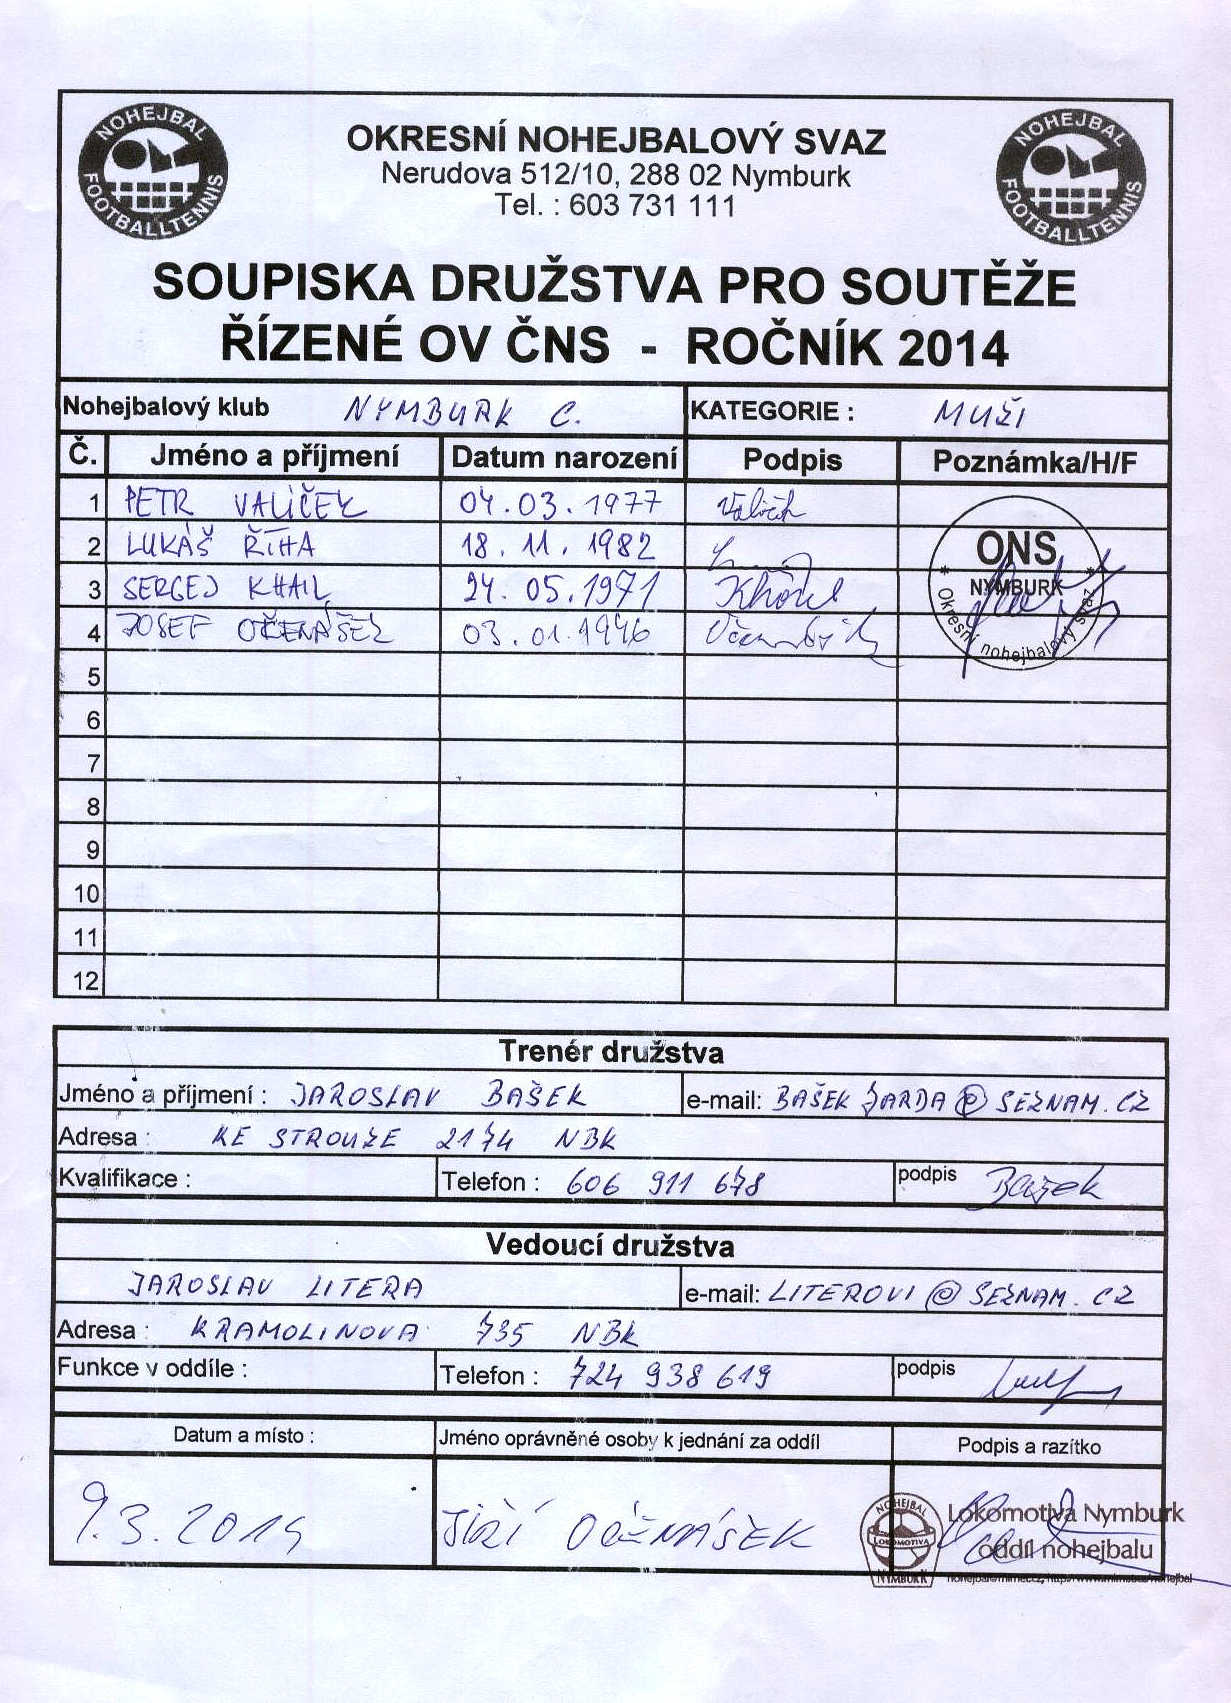 NOHEJBAL FOOTBALLTENNIS
OKRESNÍ NOHEJBALOVÝ SVAZ
Nerudova 512/10, 288 02 Nymburk
Tel. : 603 731 111
NOHEJBAL FOOTBALLTENNIS
SOUPISKA DRUŽSTVA PRO SOUTĚŽE
ŘÍZENÉ OV ČNS - ROČNÍK 2014
Nohejbalový klub NYMBURK C. KATEGORIE : MUŽI
Č. Jméno a příjmení Datum narození Podpis Poznámka/H/F
1 PETR VALÍČEK 04.03.1977 Valíček
2 LUKÁŠ ŘÍHA 18.11.1982
3 SERGEJ KHAIL 24.05.1971 Khail
4 JOSEF OČENÁŠEK 03.01.1946 Očenášek
ONS
NYMBURK
* Okresní nohejbalový svaz *
5
6
7
8
9
10
11
12
Trenér družstva
Jméno a příjmení : JAROSLAV BAŠEK e-mail: BAŠEK JARDA@SEZNAM.CZ
Adresa : KE STROUZE 2174 NBK
Kvalifikace : Telefon : 606 911 678 podpis Bašek
Vedoucí družstva
JAROSLAV LITERA e-mail: LITEROVI@SEZNAM.CZ
Adresa : KRAMOLINOVA 735 NBK
Funkce v oddíle : Telefon : 724 938 619 podpis
Datum a místo : Jméno oprávněné osoby k jednání za oddíl Podpis a razítko
9.3.2014 JIŘÍ OČENÁŠEK
NOHEJBAL LOKOMOTIVA NYMBURK
Lokomotiva Nymburk
oddíl nohejbalu